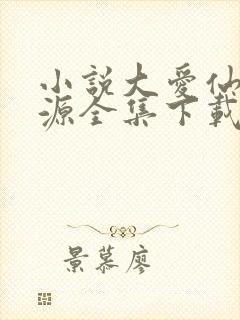 小說大愛仙
源全集下載
景慕廖